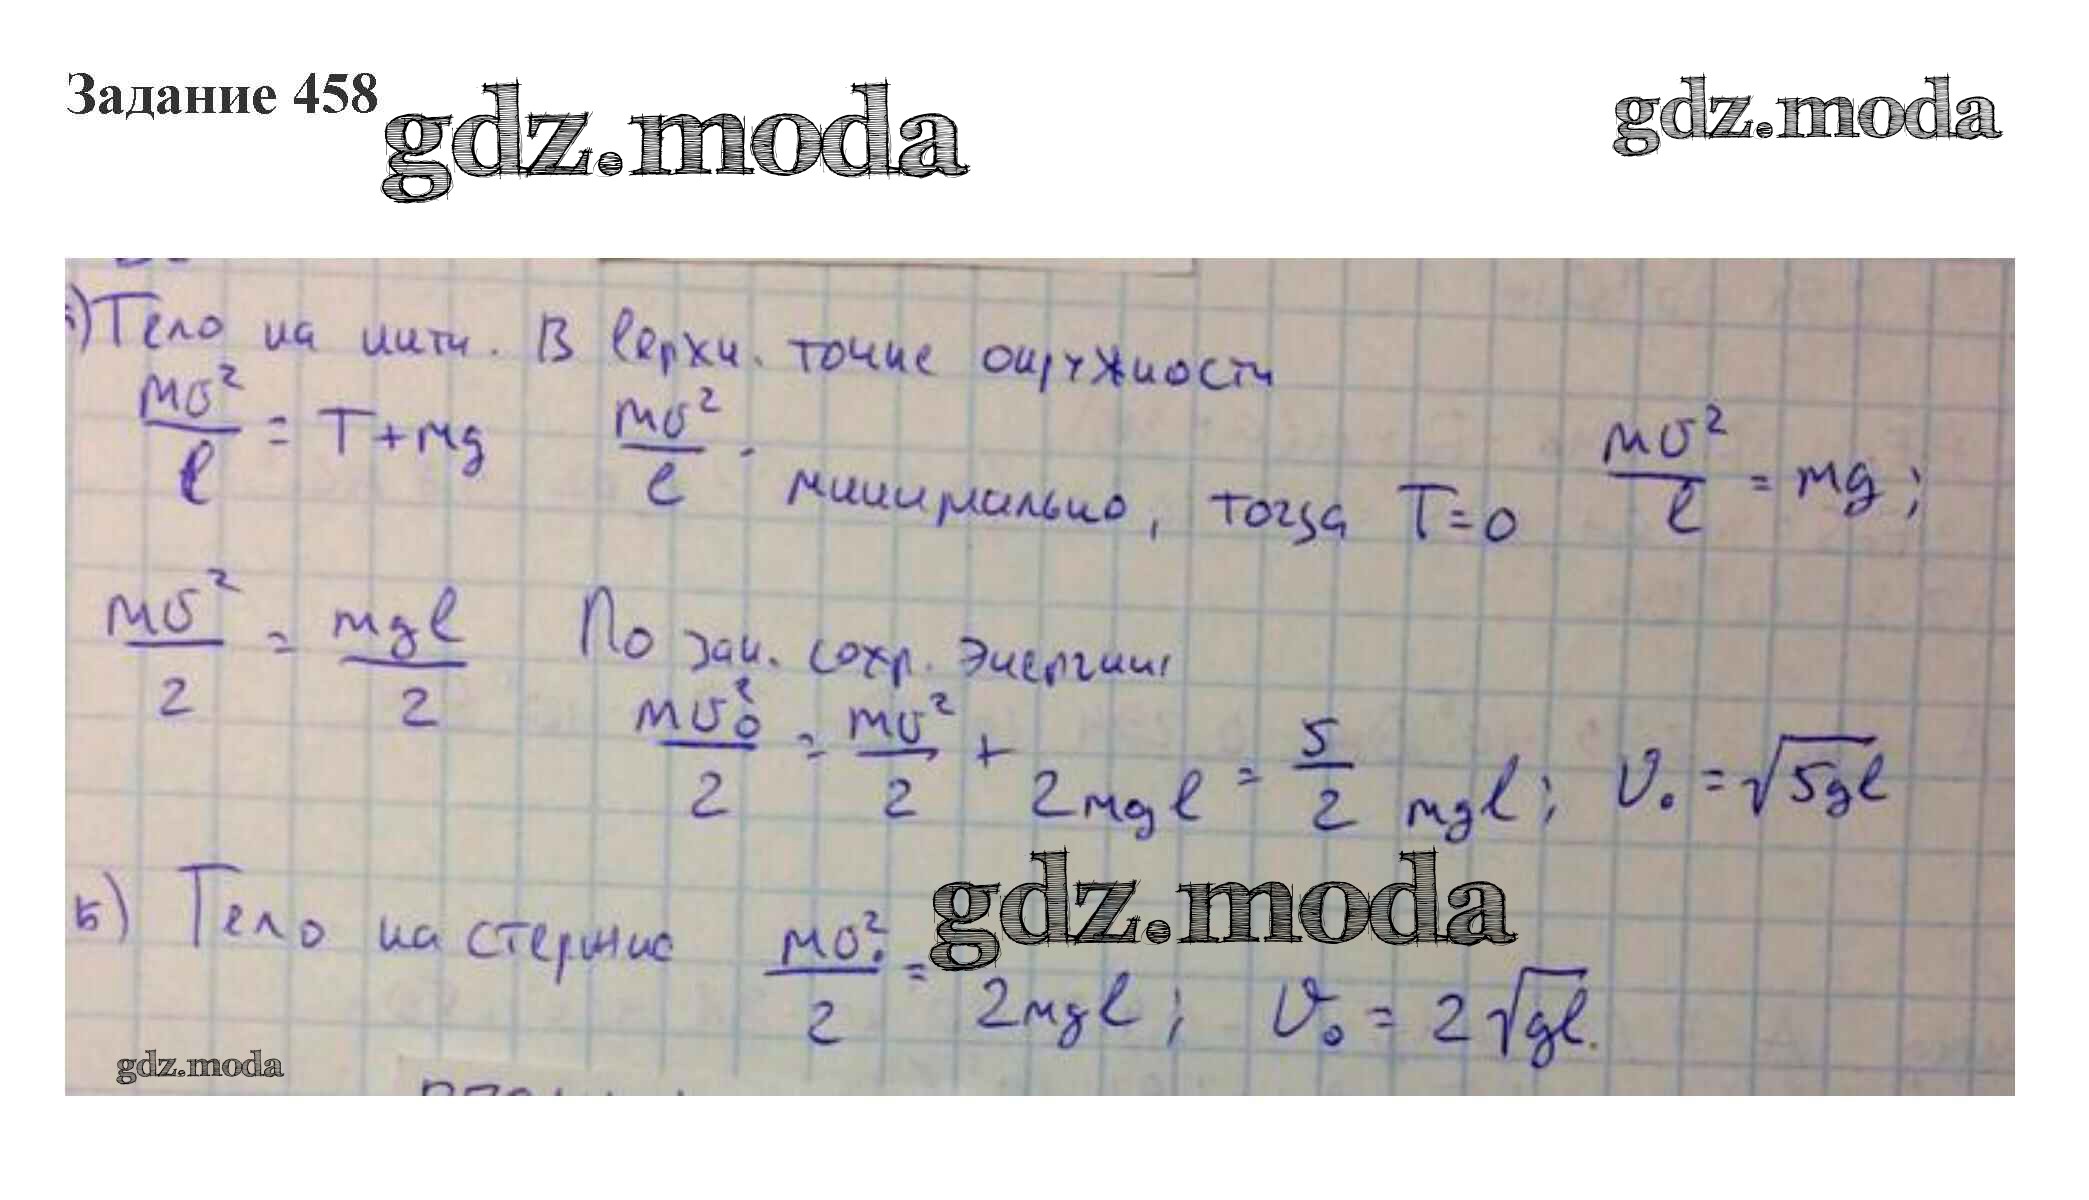 Задание 458
gdz.moda
gdz.moda
а) Тело на нити. В верхн. точке окружности
mv²/l = T + mg mv²/l - минимально, тогда T = 0 mv²/l = mg;
mv²/2 = mgl/2 По зак. сохр. энергии:
mv₀²/2 = mv²/2 + 2mgl = 5/2 mgl; v₀ = √5gl
б) Тело на стержне mv₀²/2 = 2mgl; v₀ = 2√gl.
gdz.moda
gdz.moda